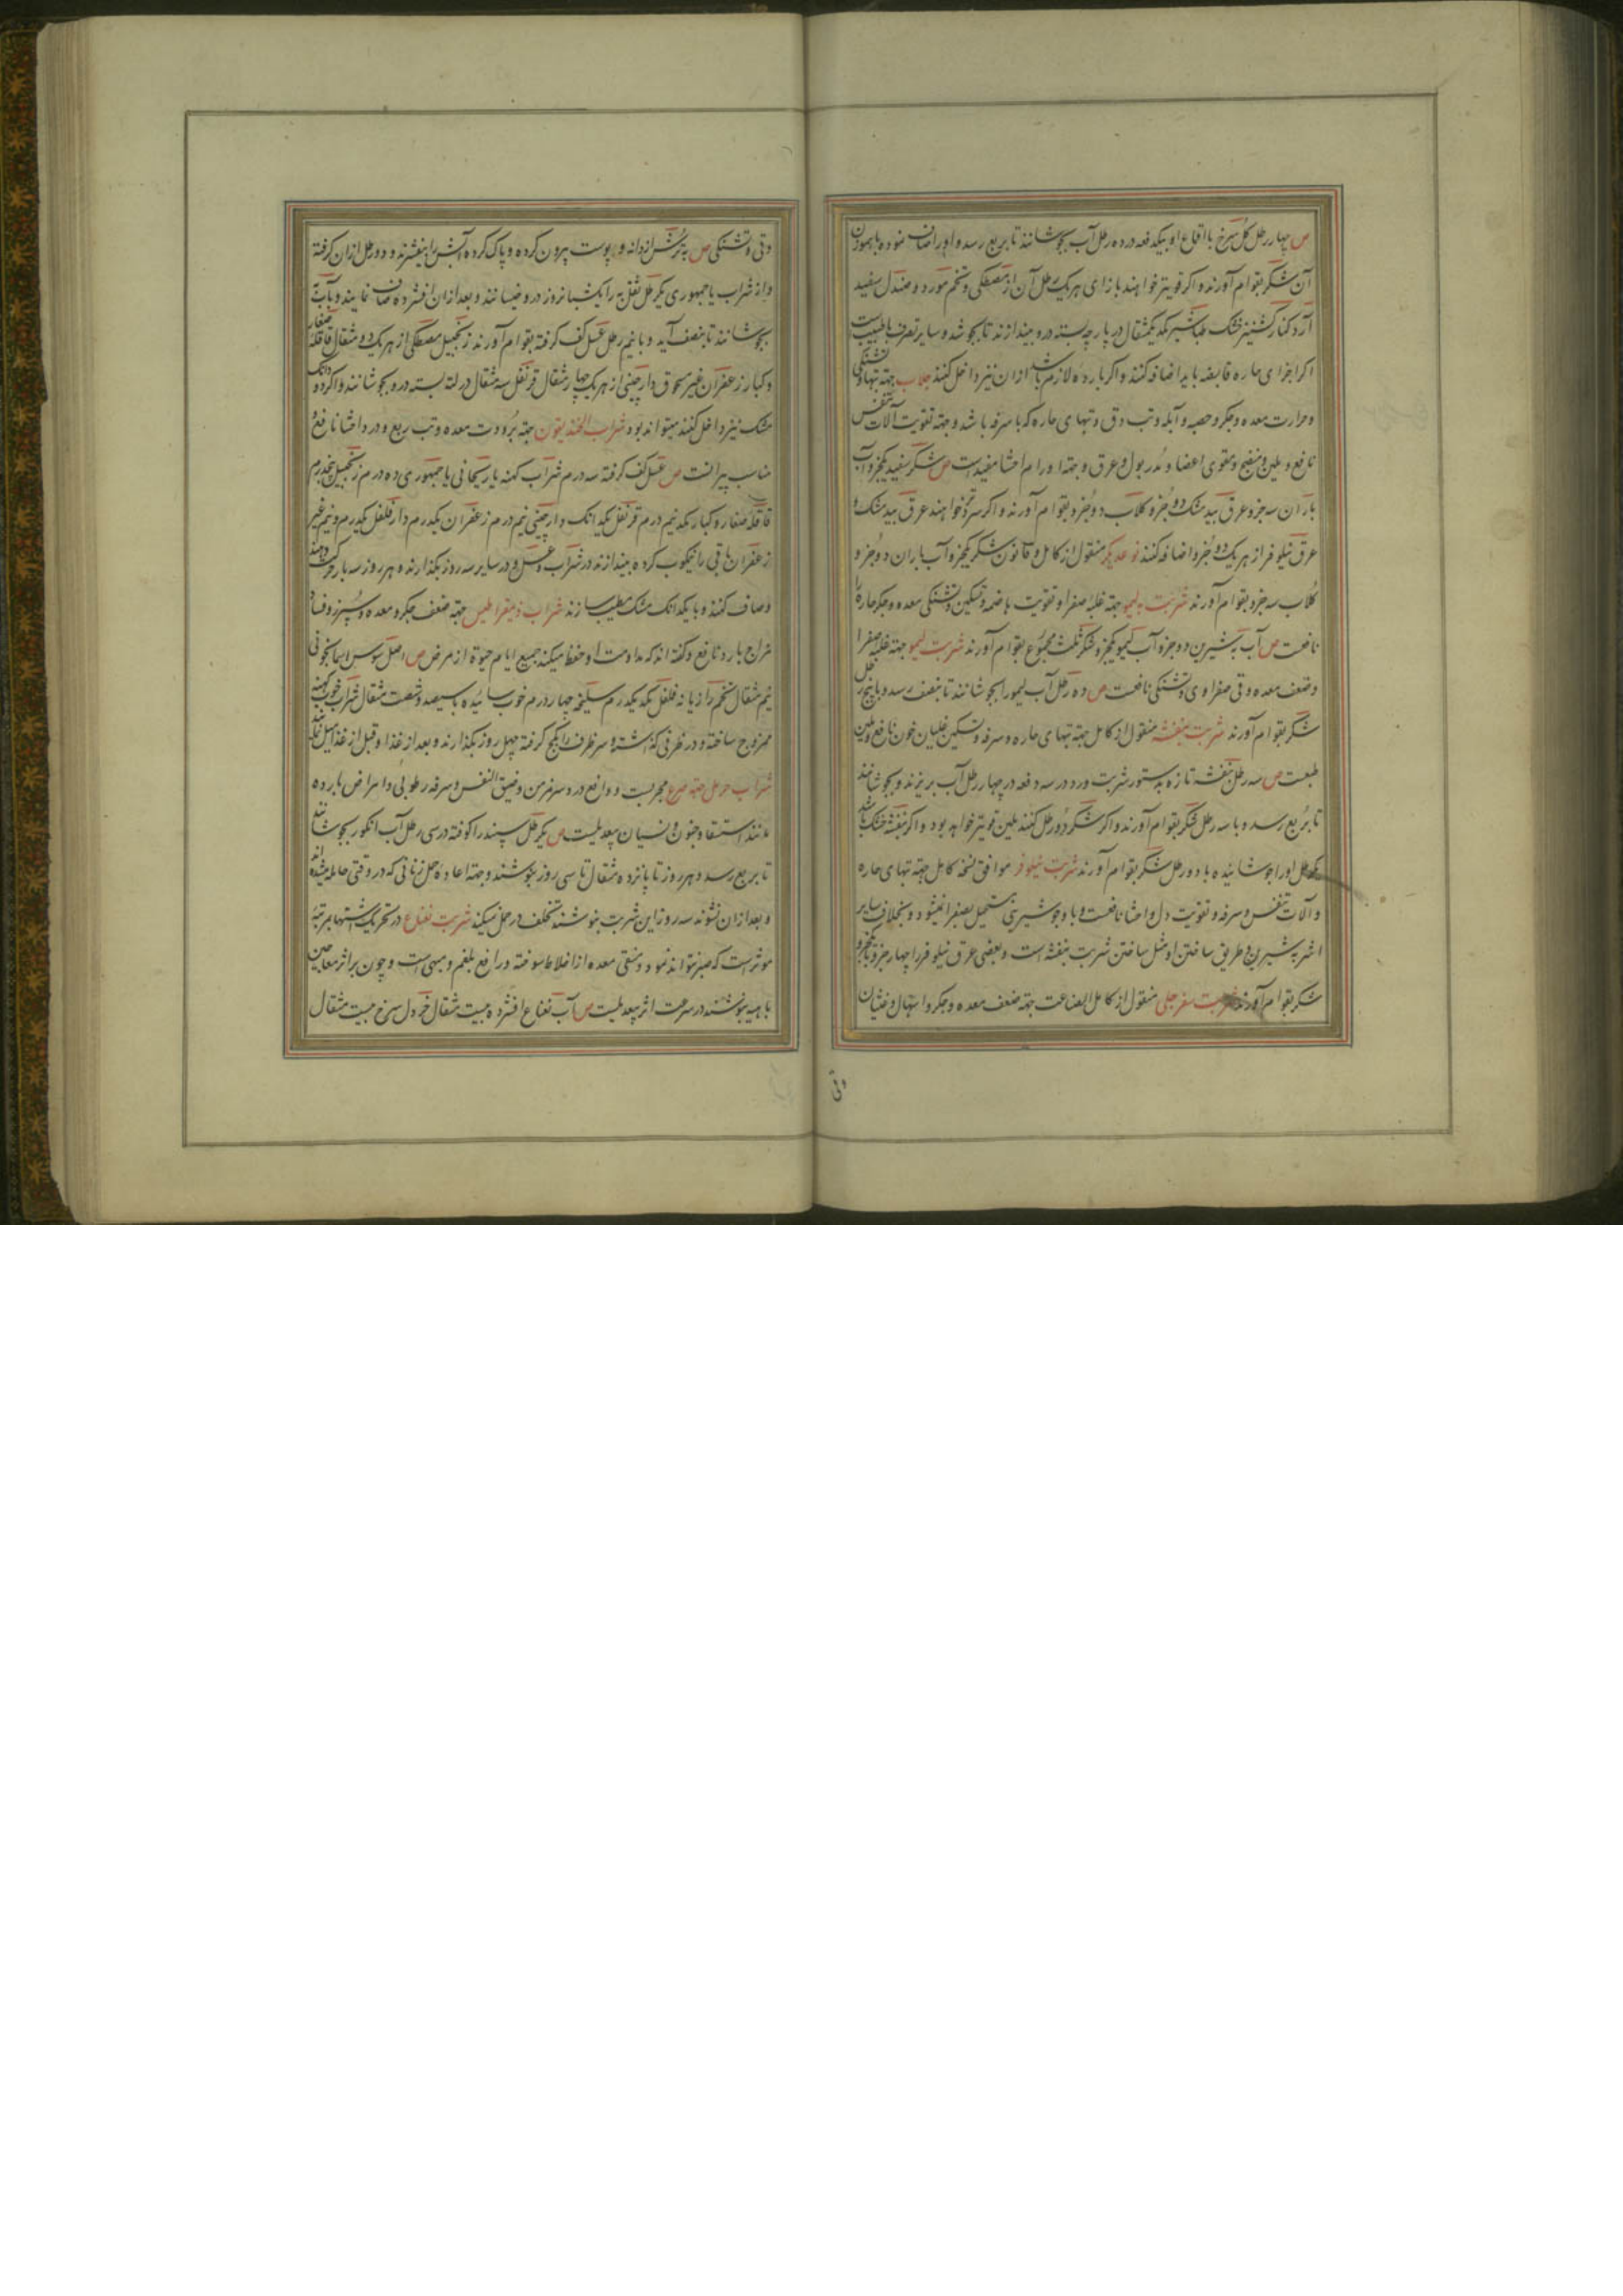 ص چهار رطل کل سرخ با اقماع او بیکدفعه در ده رطل آب بجوشانند تا بربع رسد و او را صاف نموده با بوزن
آن شکر بقوام آورند و اکر قویتر خواهند بازای هر یک رطل آن از مصطکی و تخم مورد و صندل سفید
آرد کنار کشنیز خشک طباشیر یکدیکمثقال در پارچه بسته درو بیندازند تا بجوشد و سایر تصرف با طبیبست
اکر اجزای حاره قابضه باید اضافه کنند و اکر بارده لازم باشد ازان نیز داخل کنند جلاب جهته تبها و تشنکی
و حرارت معده و جکر و حصبه و آبله و تب دق و تبهای حاره که با سرفه باشد و جهته تقویت آلات تنفس
نافع و ملین و منضج و مقوی اعضا و مدر بول و عرق و جهته اورام احشا مفیدست ص شکر سفید یکجزو آب
باران سه جزو عرق بید مشک دو جزو کلاب دو جزو بقوام آورند و اکر سردتر خواهند عرق بید مشک و
عرق نیلوفر از هر یک دو جزو اضافه کنند نوعدیکر منقول از کامل و قانون شکر یکجزو آب باران دو جزو و
کلاب سه جزو بقوام آورند شربت به لیمو جهته غلبه صفرا و تقویت هاضمه و تسکین و تشنکی معده و جکر حاره را
نافعست ص آب به شیرین دو جزو آب لیمو یکجزو شکر ثلث مجموع بقوام آورند شربت لیمو جهته غلبه صفرا
و ضعف معده و قی صفراوی و تشنکی نافعست ص ده رطل آب لیمو را بجوشانند تا بنصف رسد و با پنج رطل
شکر بقوام آورند شربت بنفشه منقول از کامل جهته تبهای حاره و سرفه و تسکین غلیان خون نافع و ملین
طبعست ص سه رطل بنفشه تازه بدستور شربت ورد در سه دفعه در چهار رطل آب بریزند و بجوشانند
تا بربع رسد و با سه رطل شکر بقوام آورند و اکر شکر دو رطل کنند بلین قویتر خواهد بود و اکر بنفشه خشک باشد
یکرطل او را جوشانیده با دو رطل شکر بقوام آورند شربت نیلوفر موافق نسخه کامل جهته تبهای حاره
و آلات تنفس و سرفه و تقویت دل و احشا نافعست و با وجود شیرینی مستحیل بصفرا نمیشود و بخلاف سایر
اشربه شیرین و طریق ساختن او مثل ساختن شربت بنفشه است و بعضی عرق نیلوفر را چهار جزو با یکجزو
شکر بقوام آورند شربت سفرجلی منقول از کامل الصناعت جهته ضعف معده و جکر و اسهال و غثیان
وقی
وقی و تشنکی ص به ترش از دانه و پوست بیرون کرده و پاک کرده آبش را بیفشرند و دو رطل ازان کرفته
و از شراب یا جمهوری یکرطل ثفل را یکشبانروز درو خیسانند و بعد ازان افشرده صاف نمایند و با آب
بجوشانند تا بنصف آید و با نیم رطل عسل کف کرفته بقوام آورند زنجبیل مصطکی از هر یک دو مثقال قاقله صغار
و کبار زعفران غیر مسحوق دارچینی از هر یک چهار مثقال قرنفل سه مثقال در لته بسته درو بجوشانند و اکر دو دانک
مشک نیز داخل کنند میتواند بود شراب الخندیقون جهته برودت معده و تب ربع و درد احشا نافع و
مناسب پیرانست ص عسل کف کرفته سه درم شراب کهنه یا ریحانی یا جمهوری ده درم زنجبیل پنجدرم
قاقله صغار و کبار یکدنیم درم قرنفل یکدانک دارچینی نیم درم زعفران یکدرم دارفلفل یکدرم و نیم غیر
زعفران باقی را نیکوب کرده بیندازند در شراب و عسل و در سایر سه روز بکذارند و هر روز سه بار حرکت دهند
و صاف کنند و با یکدانک مشک مطیب سازند شراب ذیمقراطیس جهته ضعف جکر و معده و سپرز و فساد
مزاج بارد نافع و کفته اند که مداومت او حفظ میکند جمیع ایام حیوة از مرض ص اصل سوس اسمانجونی
نیم مثقال تخم رازیانه فلفل یکدیکدرم سلیخه چهار درم خوب سائیده با سیصد و شصت مثقال شراب خوب کهنه
ممزوج ساخته و در ظرفی کذاشته و سر ظرف را بکچ کرفته چهل روز بکذارند و بعد از غذا و قبل از غذا میل نمایند
شراب حرمل جهته صرع مجربست و دافع درد سر مزمن و ضیق النفس و سرفه رطوبی و امراض بارده
مانند استسقا و جنون و نسیان بیعدیلست ص یکرطل سپند را کوفته در سی رطل آب انکور بجوشانند
تا بربع رسد و هر روز تا پانزده مثقال تا سی روز بنوشند و جهته اعاده حمل زنانی که در وقتی حامله میشده اند
و بعد ازان نشوند سه روز این شربت بنوشند تخلف در حمل نمیکند شربت نعناع در تحریک اشتها بمرتبه
موثر است که صبر نتواند نمود و منقی معده از اخلاط سوخته و رافع بلغم و مبهی است و چون بر اثر معاجین
باهیه بنوشند در سرعت اثر بیعدیلست ص آب نعناع افشرده بیست مثقال خردل سرخ بیست مثقال